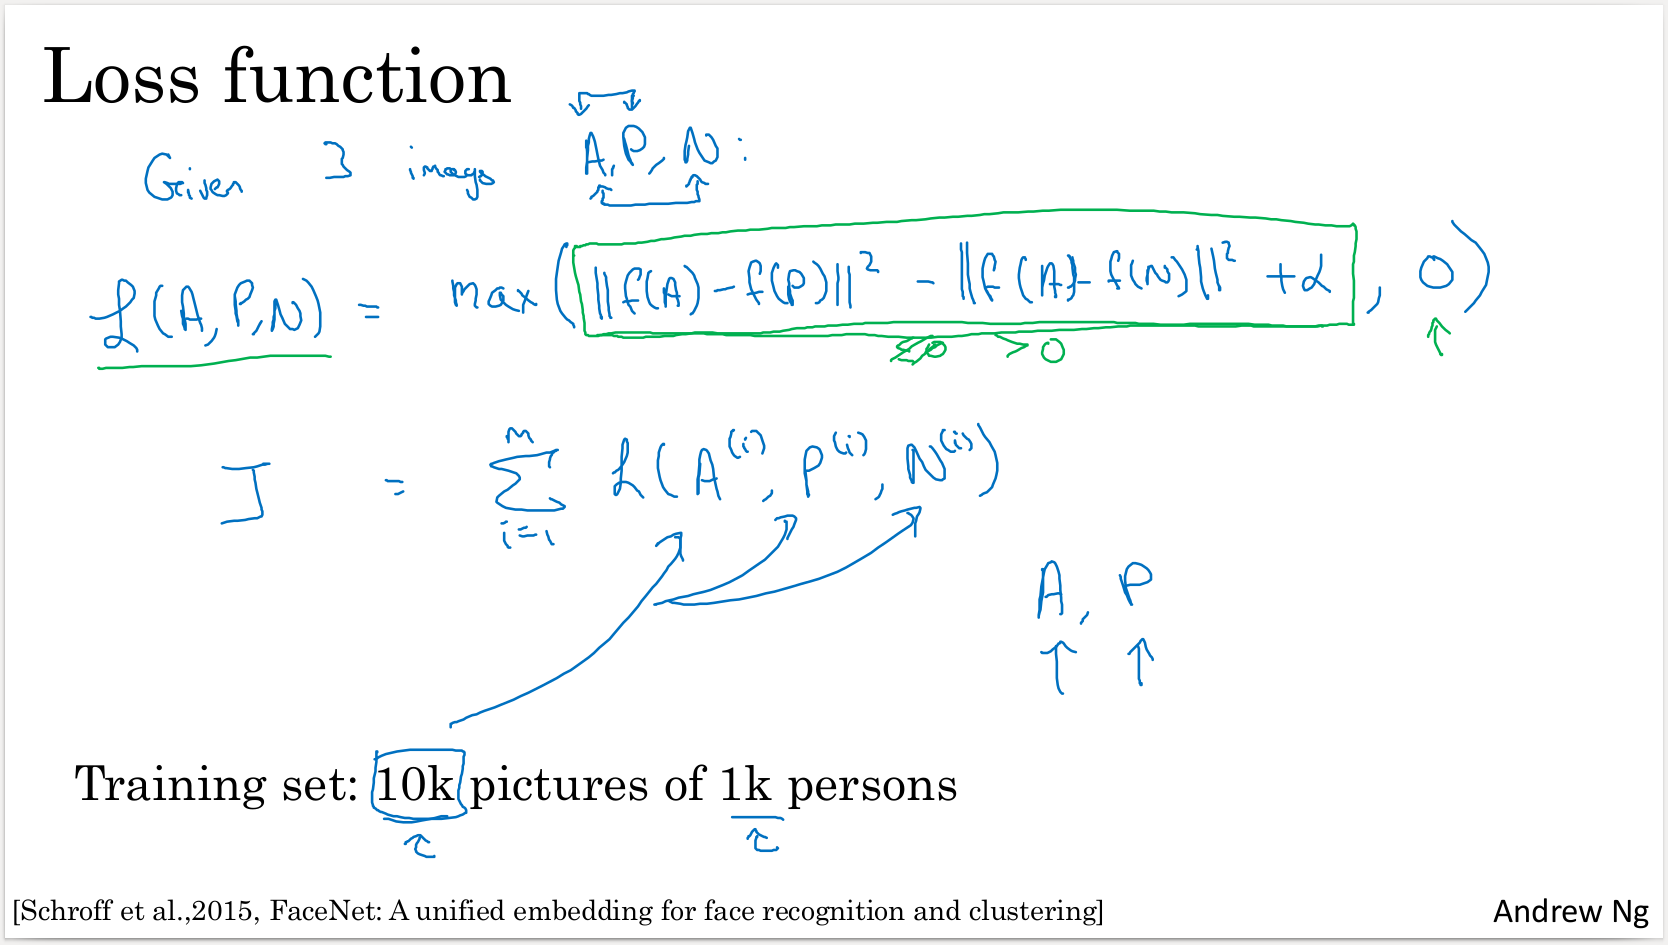 Loss function
Given 3 images A, P, N:
ℒ(A, P, N) = max(||f(A) - f(P)||² - ||f(A) - f(N)||² + α, 0)
≤0 >0
J = Σ_{i=1}^{m} ℒ(A^(i), P^(i), N^(i))
A, P
Training set: 10k pictures of 1k persons
[Schroff et al.,2015, FaceNet: A unified embedding for face recognition and clustering]
Andrew Ng